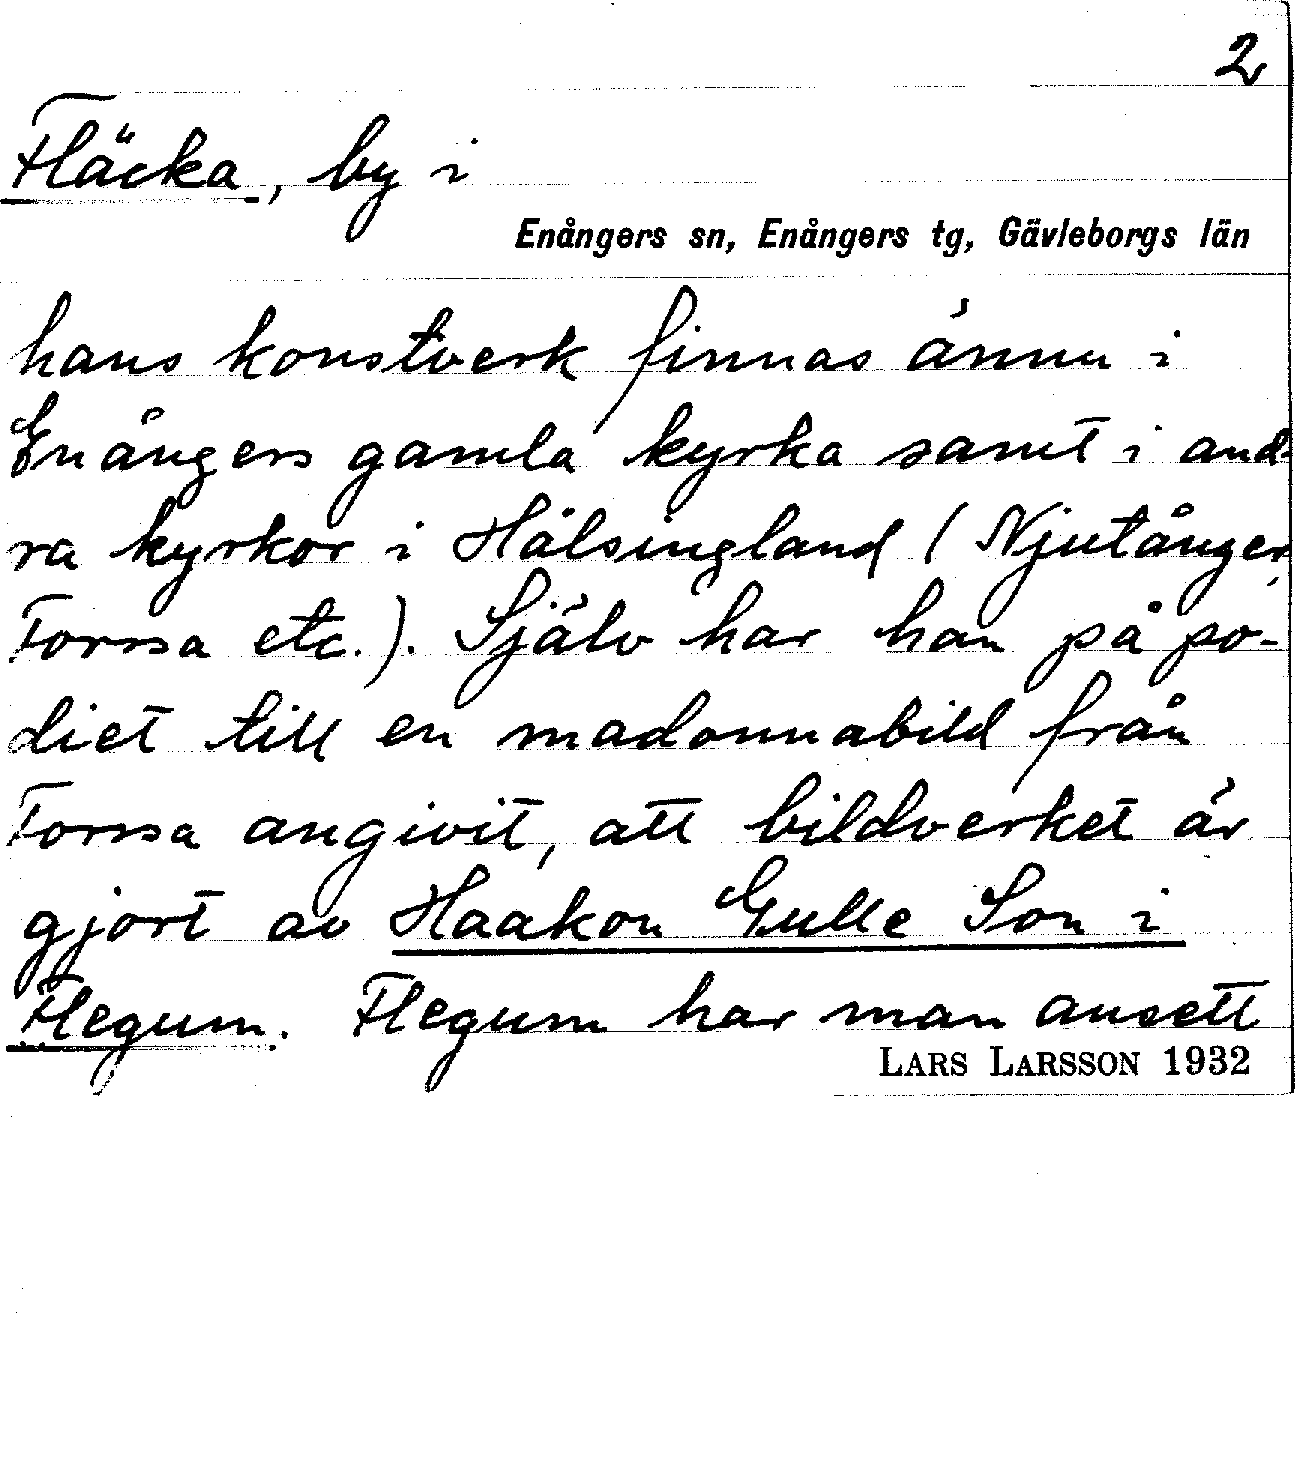 2
Fläcka, by i
Enångers sn, Enångers tg, Gävleborgs län
hans konstverk finnas ännu i
Enångers gamla kyrka samt i and-
ra kyrkor i Hälsingland (Njutånger,
Forssa etc.). Själv har han på po-
diet till en madonnabild från
Forssa angivit, att bildverket är
gjort av Haakon Gulle Son i
Flegum. Flegum har man ansett
LARS LARSSON 1932